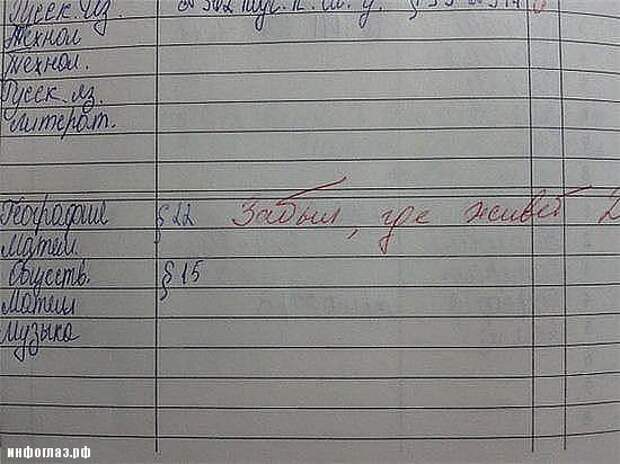 Русск. яз. §
Технол
Технол.
Русск. яз.
Литерат.
География § 22 Забыл, где живет 2
Матем
Обществ. § 15
Матем
Музыка
инфоглаз.рф